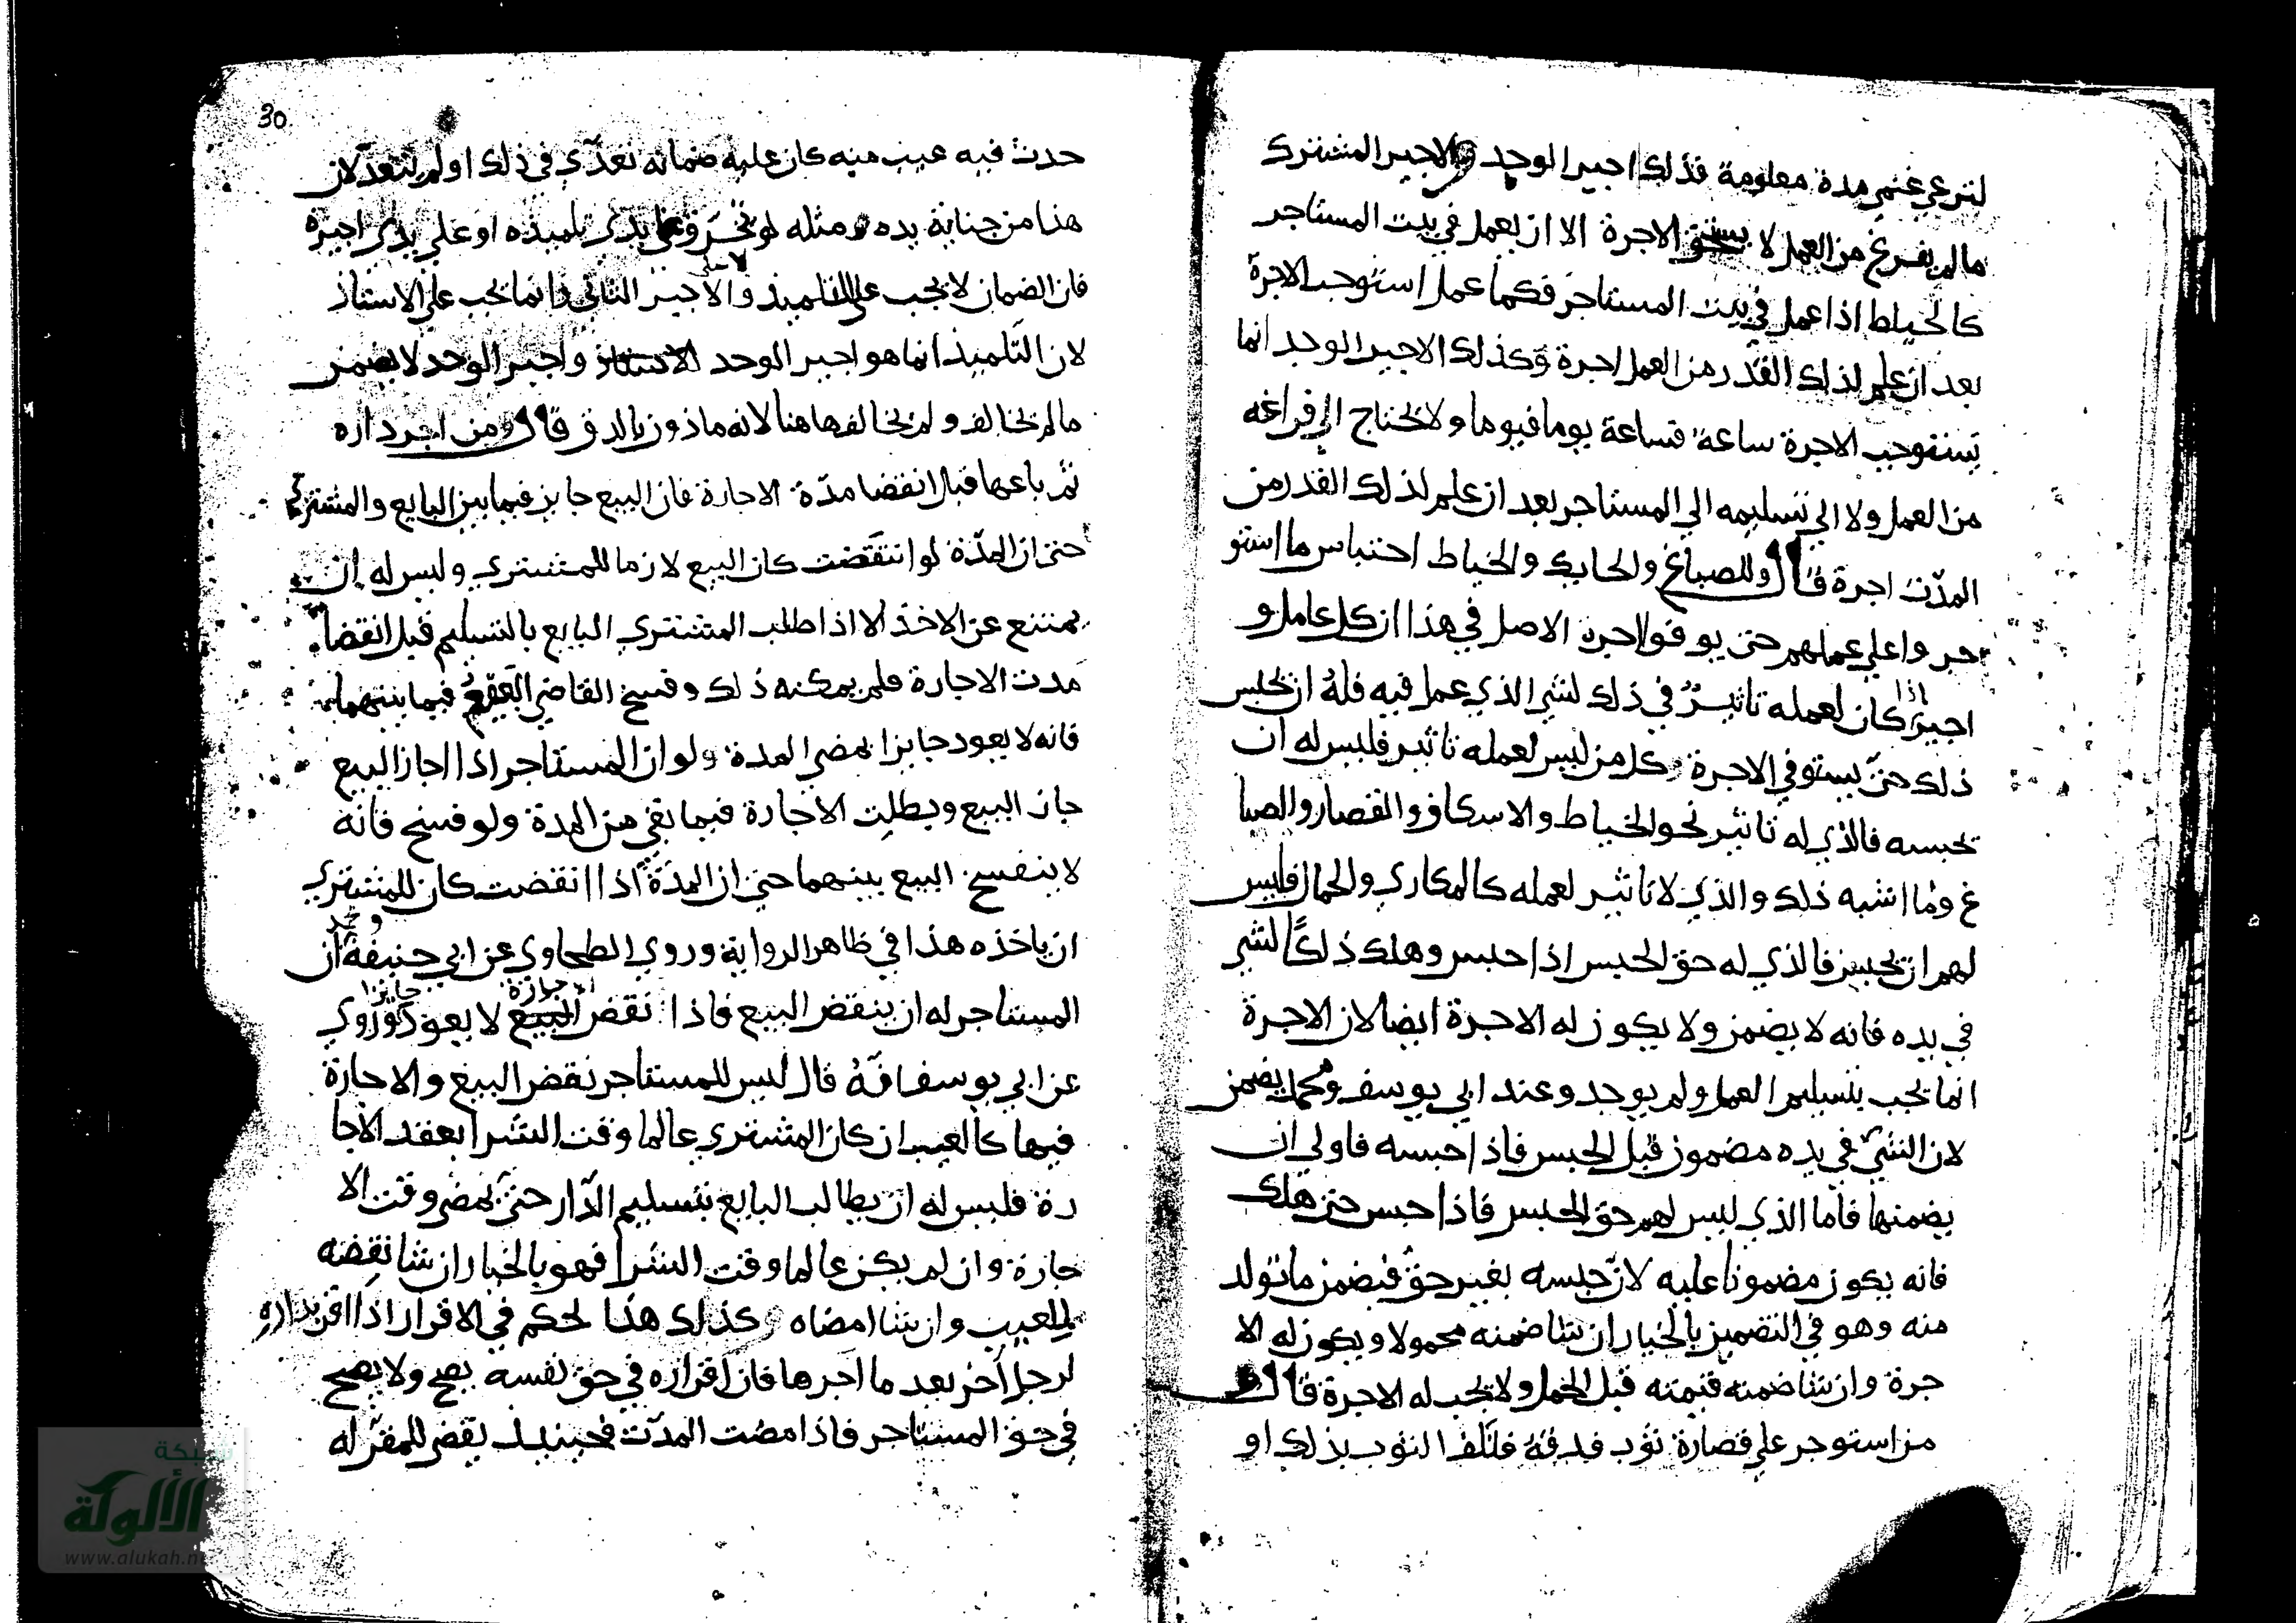 لترعي غنمي مدة معلومة فذلك اجير الوحد والاجير المشترك
ما لم يفرغ من العمل لا يستحق الاجرة الا ان يعمل في بيت المستاجر
كالخياط اذا عمل في بيت المستاجر فكما عمل استوجب الاجرة
بعد ان علم لذلك القدر من العمل اجرة وكذلك الاجير الوحد انما
يستوجب الاجرة ساعة فساعة يوما فيوما ولا يحتاج الي فراغه
من العمل ولا الي تسليمه الي المستاجر بعد ان علم لذلك القدر من
المدت اجرة قال وللصباغ والحايك والخياط احتباس ما استو
جروا علي عملهم حتى يوفوا اجره الاصل في هذا ان كل عامل و
اجير اذا كان لعمله تاثير في ذلك لشي الذي عمل فيه فله ان يحبس
ذلك حتى يستوفي الاجرة وكل من ليس لعمله تاثير فليس له ان
يحبسه فالذي له تاثير نحو الخياط والاسكاف والقصار والصبا
غ وما اشبه ذلك والذي لا تاثير لعمله كالمكاري والحمال فليس
لهم ان يحبس فالذي له حق الحبس اذا حبس وهلك ذلك لشي
في يده فانه لا يضمن ولا يكون له الاجرة ايضا لان الاجرة
انما يجب بتسليم العمل ولم يوجد وعند ابي يوسف ومحمد يضمن
لان الشي في يده مضمون قبل الحبس فاذا حبسه فاولي ان
يضمنها فاما الذي ليس لهم حق الحبس فاذا حبس حتى هلك
فانه يكون مضمونا عليه لان حبسه بغير حق فيضمن ما تولد
منه وهو في التضمين بالخيار ان شا ضمنه محمولا ويكون له الا
جرة وان شا ضمنه قيمته قبل الحمل ولا يجب له الاجرة قال
من استوجر علي قصارة ثوب فدقه فتلف الثوب بذلك او
30
حدث فيه عيب منه كان عليه ضمانه تعدّي في ذلك او لم يتعد لان
هذا من جناية يده ومثله لو تخرق علي يدي تلميذه او علي يدي اجيره
فان الضمان لا يجب علي التلميذ ولا علي الاجير الثاني وانما يجب علي الاستاذ
لان التلميذ انما هو اجير الوحد الاستاذ واجير الوحد لا يضمن
ما لم يخالف ولم يخالف هاهنا لانه ماذون بالدق قال ومن اجر داره
ثم باعها قبل انقضا مدّة الاجارة فان البيع جايز فيما بين البايع والمشتري
حتى ان المدّة لو انتقضت كان البيع لازما للمشتري وليس له ان
يمتنع عن الاخذ الا اذا طلب المشتري البايع بالتسليم قبل انقضا
مدت الاجارة فلم يمكنه ذلك وفسخ القاضي العقد فيما بينهما
فانه لا يعود جايزا بمضي المدة ولو ان المستاجر اذا اجاز البيع
جاز البيع وبطلت الاجارة فيما بقي من المدة ولو فسخ فانه
لا ينفسخ البيع بينهما حتى ان المدة اذا انقضت كان للمشتري
ان ياخذه هذا في ظاهر الرواية وروي الطحاوي عن ابي حنيفة ومحمد ان
المستاجر له ان ينقض البيع فاذا نقض البيع لا يعود جايزا وروي
عن ابي يوسف انّه قال ليس للمستاجر نقض البيع والاجارة
فيها كالعيب ان كان المشتري عالما وقت الشرا بعقد الاجا
رة فليس له ان يطالب البايع بتسليم الدّار حتى يمضي وقت الا
جارة وان لم يكن عالما وقت الشرا فهو بالخيار ان شا نقضه
للعيب وان شا امضاه وكذلك هذا لحكم في الاقرار اذا اقر بداره
لرجل آخر بعد ما آجرها فان اقراره في حق نفسه يصح ولا يصح
في حق المستاجر فاذا مضت المدّت فحينيذ يقض للمقر له
شبكة
الألوكة
www.alukah.n